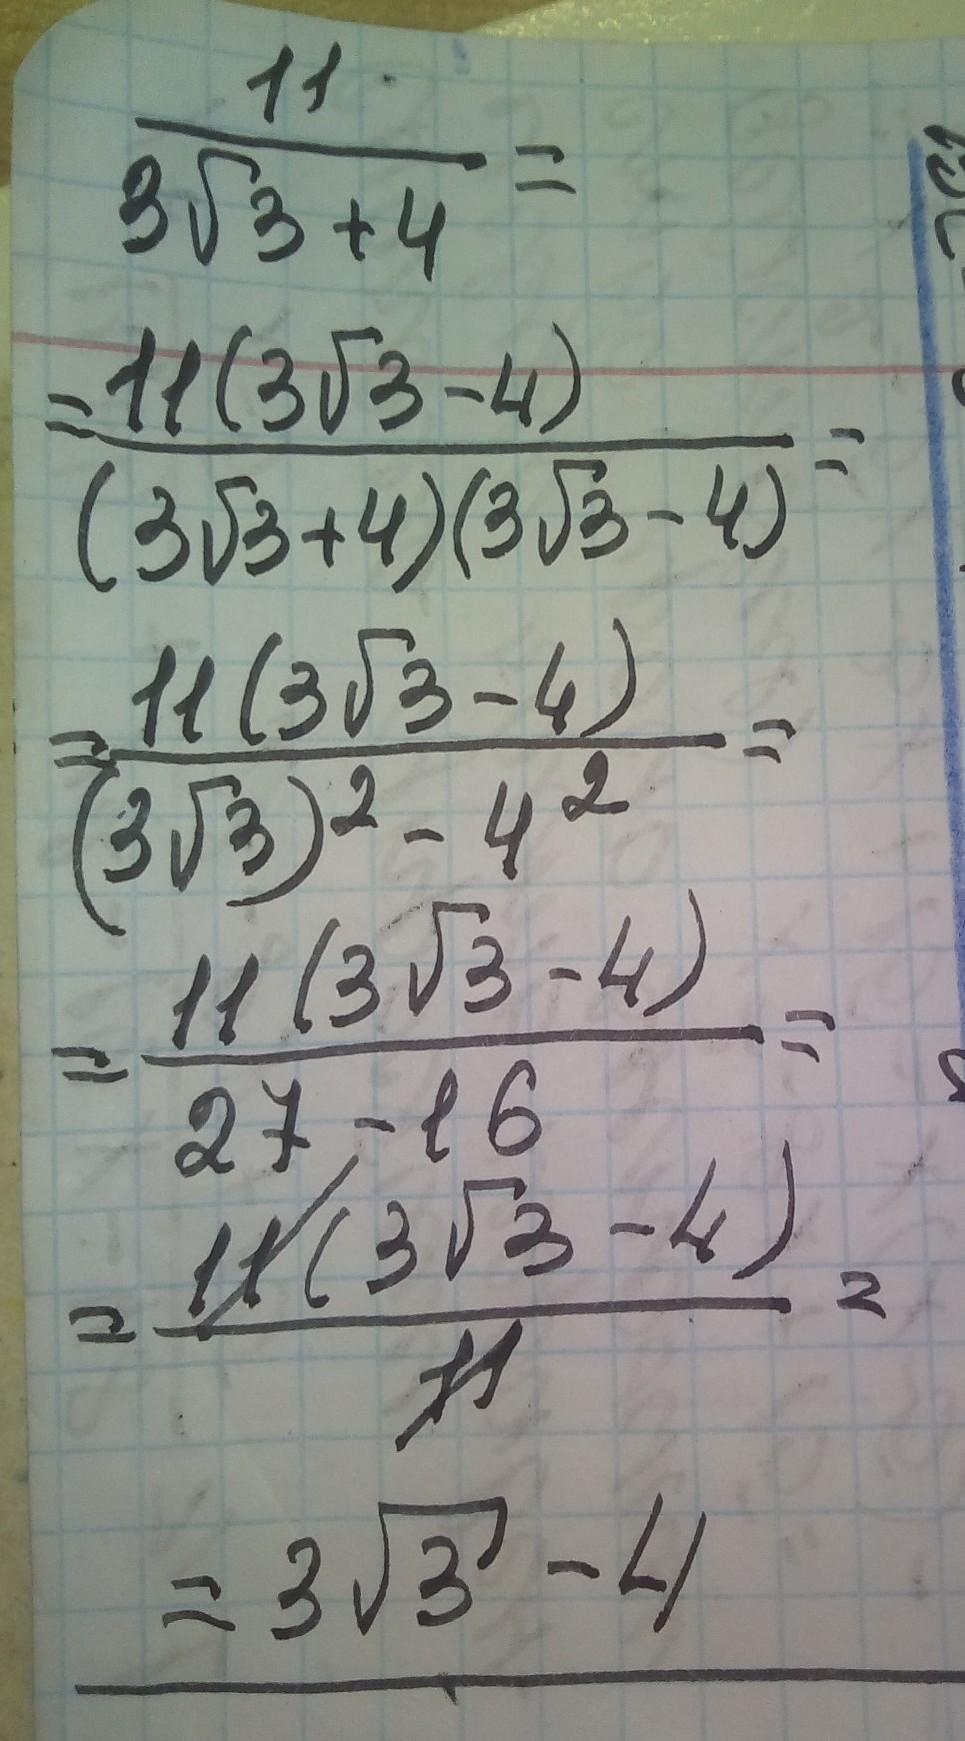 11
3√3+4 =
= 11(3√3-4)
(3√3+4)(3√3-4) =
= 11(3√3-4)
(3√3)² - 4² =
= 11(3√3-4)
27-16 =
= 11(3√3-4)
11 =
= 3√3 - 4